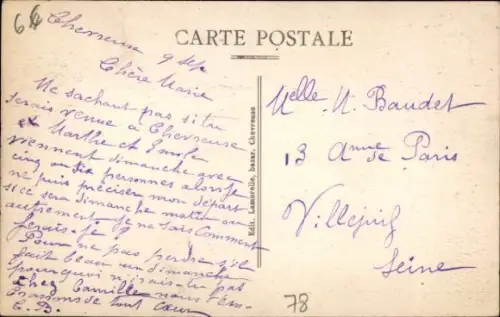 64
Chevreuse 9 sep
CARTE POSTALE
Chère Marie
Ne sachant pas si tu
serais venue à Chevreuse
et Marthe et
viennent dimanche avec
cinq ou six personnes alors je
ne puis préciser mon départ
si ce sera dimanche matin ou
autrement je ne sais comment
ferais-je ?
Pour ne pas perdre s'il
fait beau un dimanche
pourquoi n'irais-tu pas
chez Camille nous t'em-
brassons de tout cœur
C. B.
Edit. Lamarelle, bazar, Chevreuse
Melle M. Baudet
13 Anne de Paris
Villejuif
Seine
78